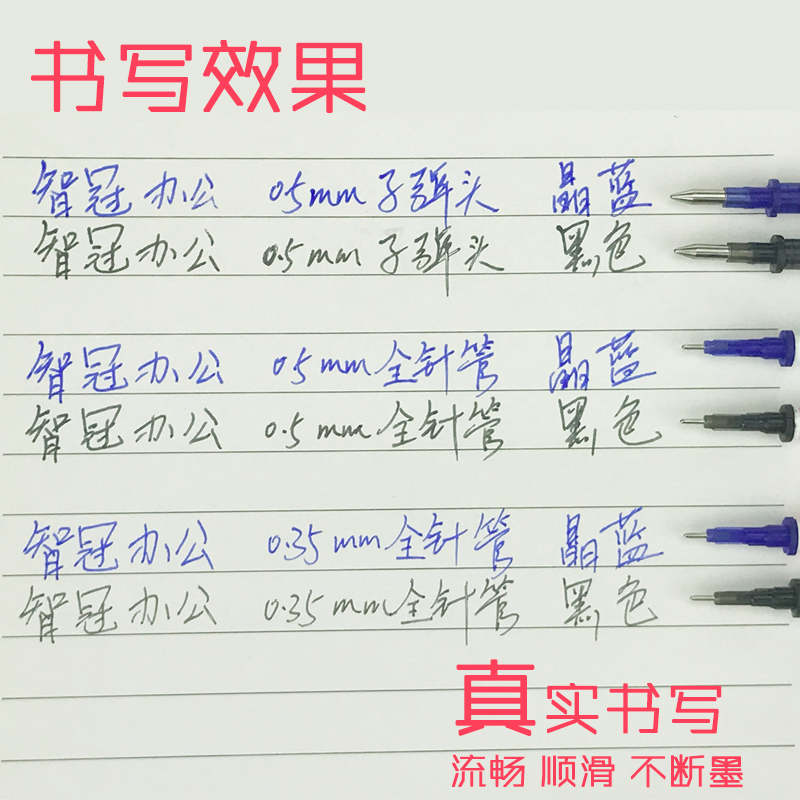 书写效果
智冠办公 0.5mm 子弹头 晶蓝
智冠办公 0.5mm 子弹头 黑色
智冠办公 0.5mm 全针管 晶蓝
智冠办公 0.5mm 全针管 黑色
智冠办公 0.35mm 全针管 晶蓝
智冠办公 0.35mm 全针管 黑色
真实书写
流畅 顺滑 不断墨